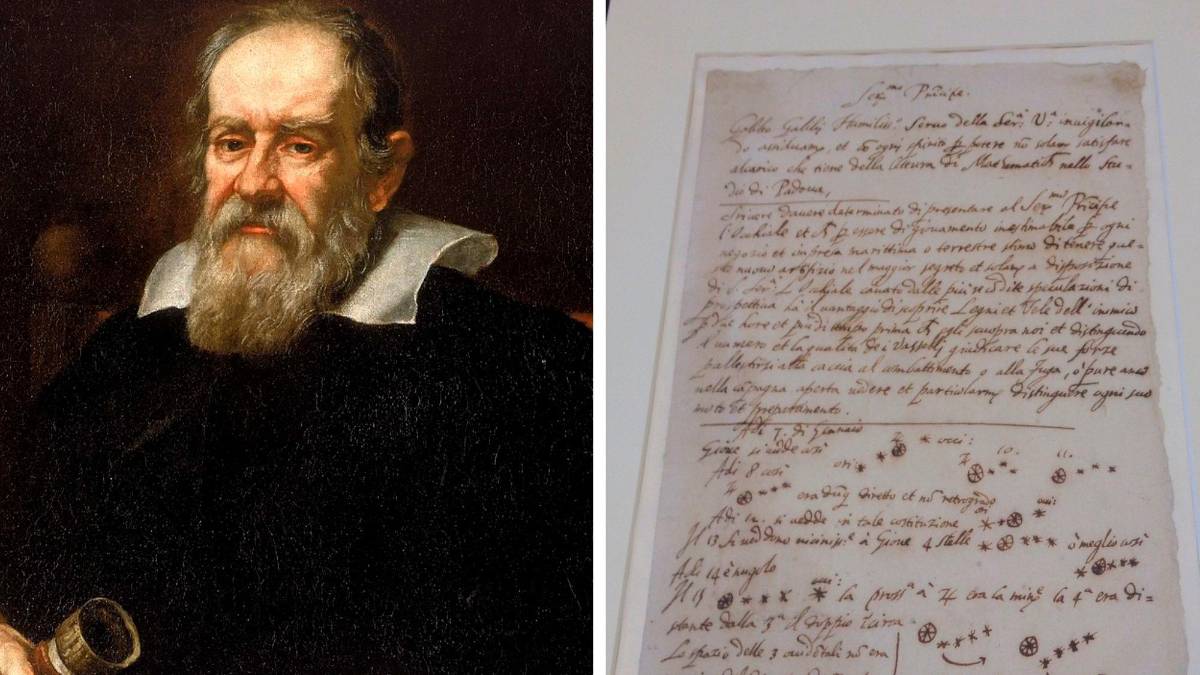 Ser.mo Principe.
Galileo Galilei Humiliss.o Servo della Ser.a V.a invigilan-
do assiduam.te et cō ogni spirito p potere nō solam satisfare
alcarico che tiene della lettura di Mathematich nello Stu-
dio di Padova,
Scrivere davere determinato di presentare al Ser.mo Principe
l'Occhiale et ch p essere di giovamento inestimabile p ogni
negozio et impresa marittima o terrestre stimo di tenere que-
sto nuovo artifizio nel maggior segreto et solam a disposizione
di S. Ser.a L'Occhiale cavato dalle più recōdite speculazioni di
prospettiva hà il vantaggio di scoprire Legni et Vele dell'inimico
p due hore et più di tempo prima ch egli scuopra noi et distinguendo
il numero et la qualità dei Vasselli giudicare le sue forze
pallestirsi alla caccia al combattimento o alla fuga, ò pure anco
nella cōpagna aperta vedere et particolarm distinguere ogni suo
moto et preparamento.
Adi 7. di Gennaio
Giove si vedde così
Adi 8 così
ori: occi:
10. 11.
era dūq diretto et nō retrogrado
Adi 12. si vedde in tale costituzione
Il 13 si veddono vicinis.e à Giove 4 stelle ò meglio così
Adi 14 è nugolo
Il 15 la pross.a à ♃ era la min.e la 4.a era di-
stante dalla 3.a il doppio Circa
Lo spazio delle 3 occidētali nō era